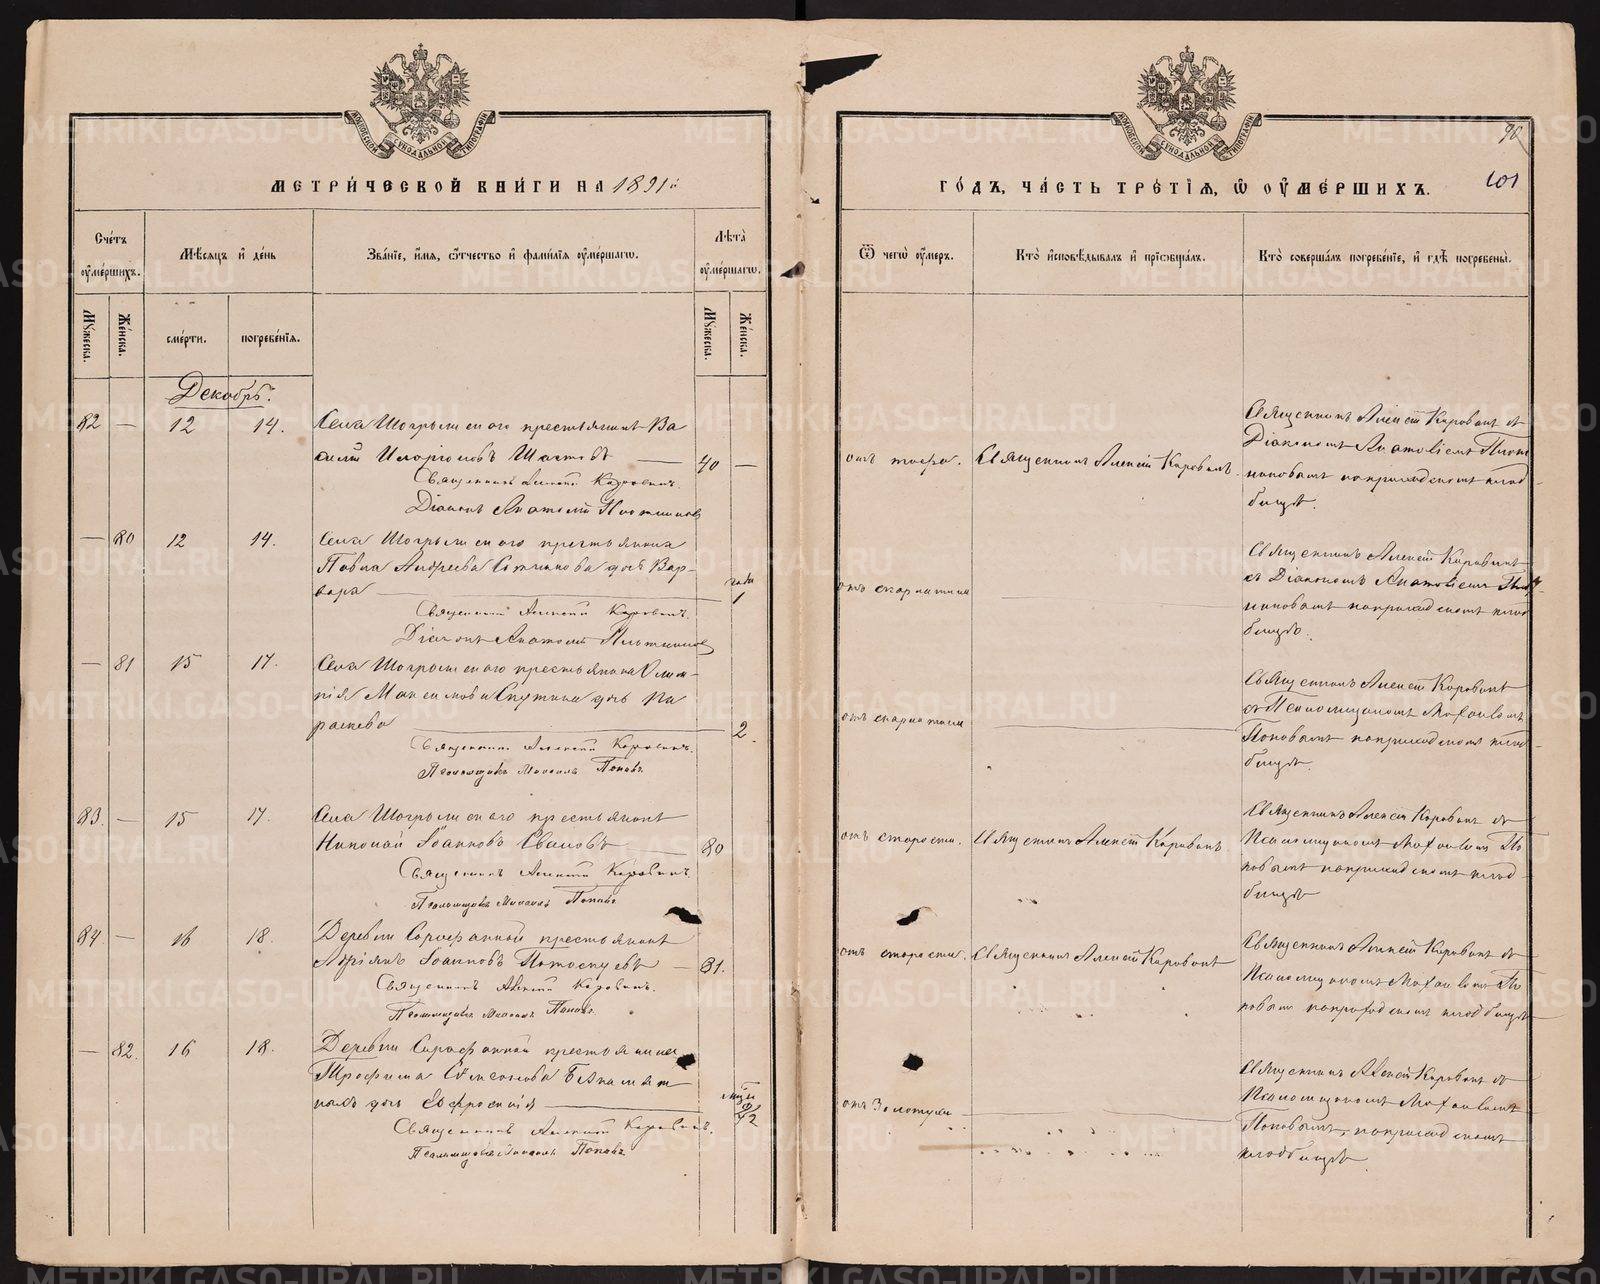 МЕТРИЧЕСКОЙ КНИГИ НА 1891й
ГОДЪ, ЧАСТЬ ТРЕТІЯ, Ѡ ОУМЕРШИХЪ.
90
101
Счетъ оумершихъ.
Мѣсяцъ и день
Званіе, имя, ѿчество и фамилія оумершагѡ.
Лѣта оумершагѡ.
Ѿ чегѡ оумеръ.
Кто исповѣдывалъ и пріобщалъ.
Кто совершалъ погребеніе, и гдѣ погребены.
Мꙋжеска.
Женска.
смерти.
погребенія.
Мꙋжеска.
Женска.
Декабрь.
82 — 12 14.
Села Шогрышскаго крестьянинъ Ва
силій
40 —
Священникъ Алексій Коровинъ.
Діаконъ Анатолій Плотниковъ
Священникъ Алексій Коровинъ
Священникъ Алексій Коровинъ съ
Діакономъ Анатоліемъ Плот
никовымъ на приходскомъ клад
бищѣ.
— 80 12 14.
Села Шогрышскаго крестьянина
Павла Андреева дочь Вар-
вара
года
1
Священникъ Алексій Коровинъ.
Діаконъ Анатолій Плотниковъ
отъ скарлатины
Священникъ Алексій Коровинъ
съ Діакономъ Анатоліемъ Плот
никовымъ на приходскомъ клад
бищѣ.
— 81 15 17.
Села Шогрышскаго крестьянина Олим-
пія Максимова дочь Па
раскева
2.
Священникъ Алексій Коровинъ.
Псаломщикъ Михаилъ Поповъ.
отъ скарлатины
Священникъ Алексій Коровинъ
съ Псаломщикомъ Михаиломъ
Поповымъ на приходскомъ клад
бищѣ.
83. — 15 17.
Села Шогрышскаго крестьянинъ
Николай Іоанновъ
80
Священникъ Алексій Коровинъ.
Псаломщикъ Михаилъ Поповъ
отъ старости.
Священникъ Алексій Коровинъ
Священникъ Алексій Коровинъ съ
Псаломщикомъ Михаиломъ По
повымъ на приходскомъ клад
бищѣ
84. — 16 18.
Деревни крестьянинъ
Іоанновъ
81.
Священникъ Алексій Коровинъ.
Псаломщикъ Михаилъ Поповъ.
отъ старости.
Священникъ Алексій Коровинъ
Священникъ Алексій Коровинъ съ
Псаломщикомъ Михаиломъ По
повымъ на приходскомъ кладбищѣ
— 82. 16 18.
Деревни крестьянина
Трофима
дочь Евфросинія
Священникъ Алексій Коровинъ.
Псаломщикъ Михаилъ Поповъ
отъ Золотухи
Священникъ Алексій Коровинъ съ
Псаломщикомъ Михаиломъ
Поповымъ, на приходскомъ
кладбищѣ.
METRIKI.GASO-URAL.RU